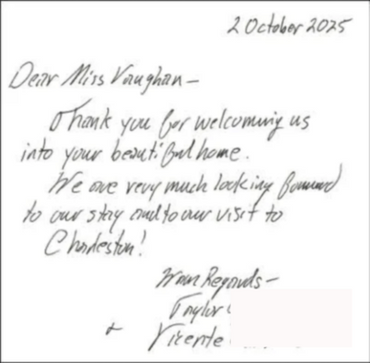 2 October 2025
Dear Miss Vaughan-
Thank you for welcoming us
into your beautiful home.
We are very much looking forward
to our stay and to our visit to
Charleston!
Warm Regards-
Taylor
+
Vicente